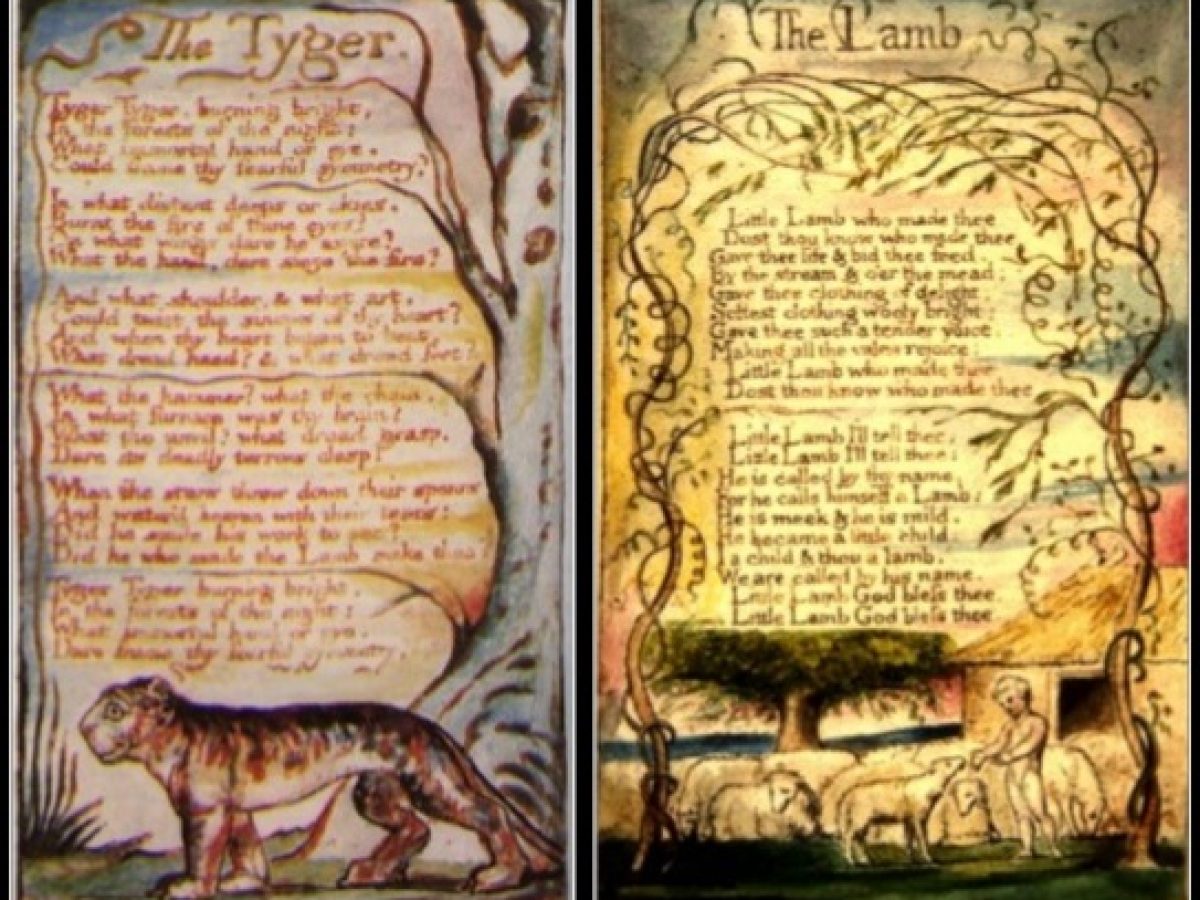 The Tyger.
Tyger Tyger, burning bright,
In the forests of the night:
What immortal hand or eye,
Could frame thy fearful symmetry?
In what distant deeps or skies.
Burnt the fire of thine eyes?
On what wings dare he aspire?
What the hand, dare sieze the fire?
And what shoulder, & what art,
Could twist the sinews of thy heart?
And when thy heart began to beat,
What dread hand? & what dread feet?
What the hammer? what the chain,
In what furnace was thy brain?
What the anvil? what dread grasp,
Dare its deadly terrors clasp!
When the stars threw down their spears
And water'd heaven with their tears:
Did he smile his work to see?
Did he who made the Lamb make thee?
Tyger Tyger burning bright,
In the forests of the night:
What immortal hand or eye,
Dare frame thy fearful symmetry?
The Lamb
Little Lamb who made thee
Dost thou know who made thee
Gave thee life & bid thee feed.
By the stream & o'er the mead;
Gave thee clothing of delight,
Softest clothing wooly bright;
Gave thee such a tender voice,
Making all the vales rejoice:
Little Lamb who made thee
Dost thou know who made thee
Little Lamb I'll tell thee,
Little Lamb I'll tell thee:
He is called by thy name,
For he calls himself a Lamb:
He is meek & he is mild,
He became a little child:
I a child & thou a lamb,
We are called by his name.
Little Lamb God bless thee.
Little Lamb God bless thee.